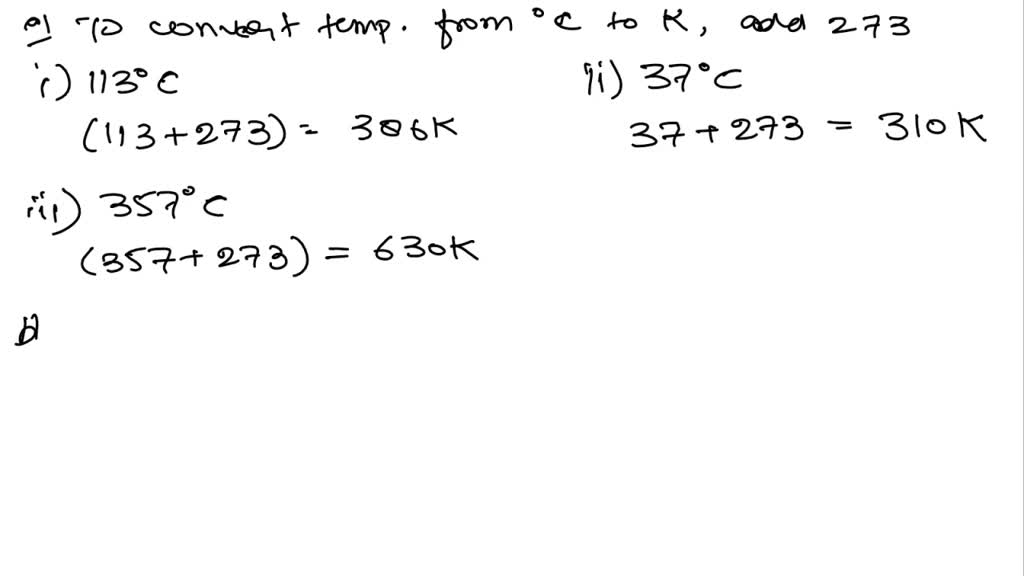 a) To convert temp. from °C to K, add 273
i) 113°C
(113+273) = 386K
ii) 37°C
37+273 = 310K
iii) 357°C
(357+273) = 630K
b)